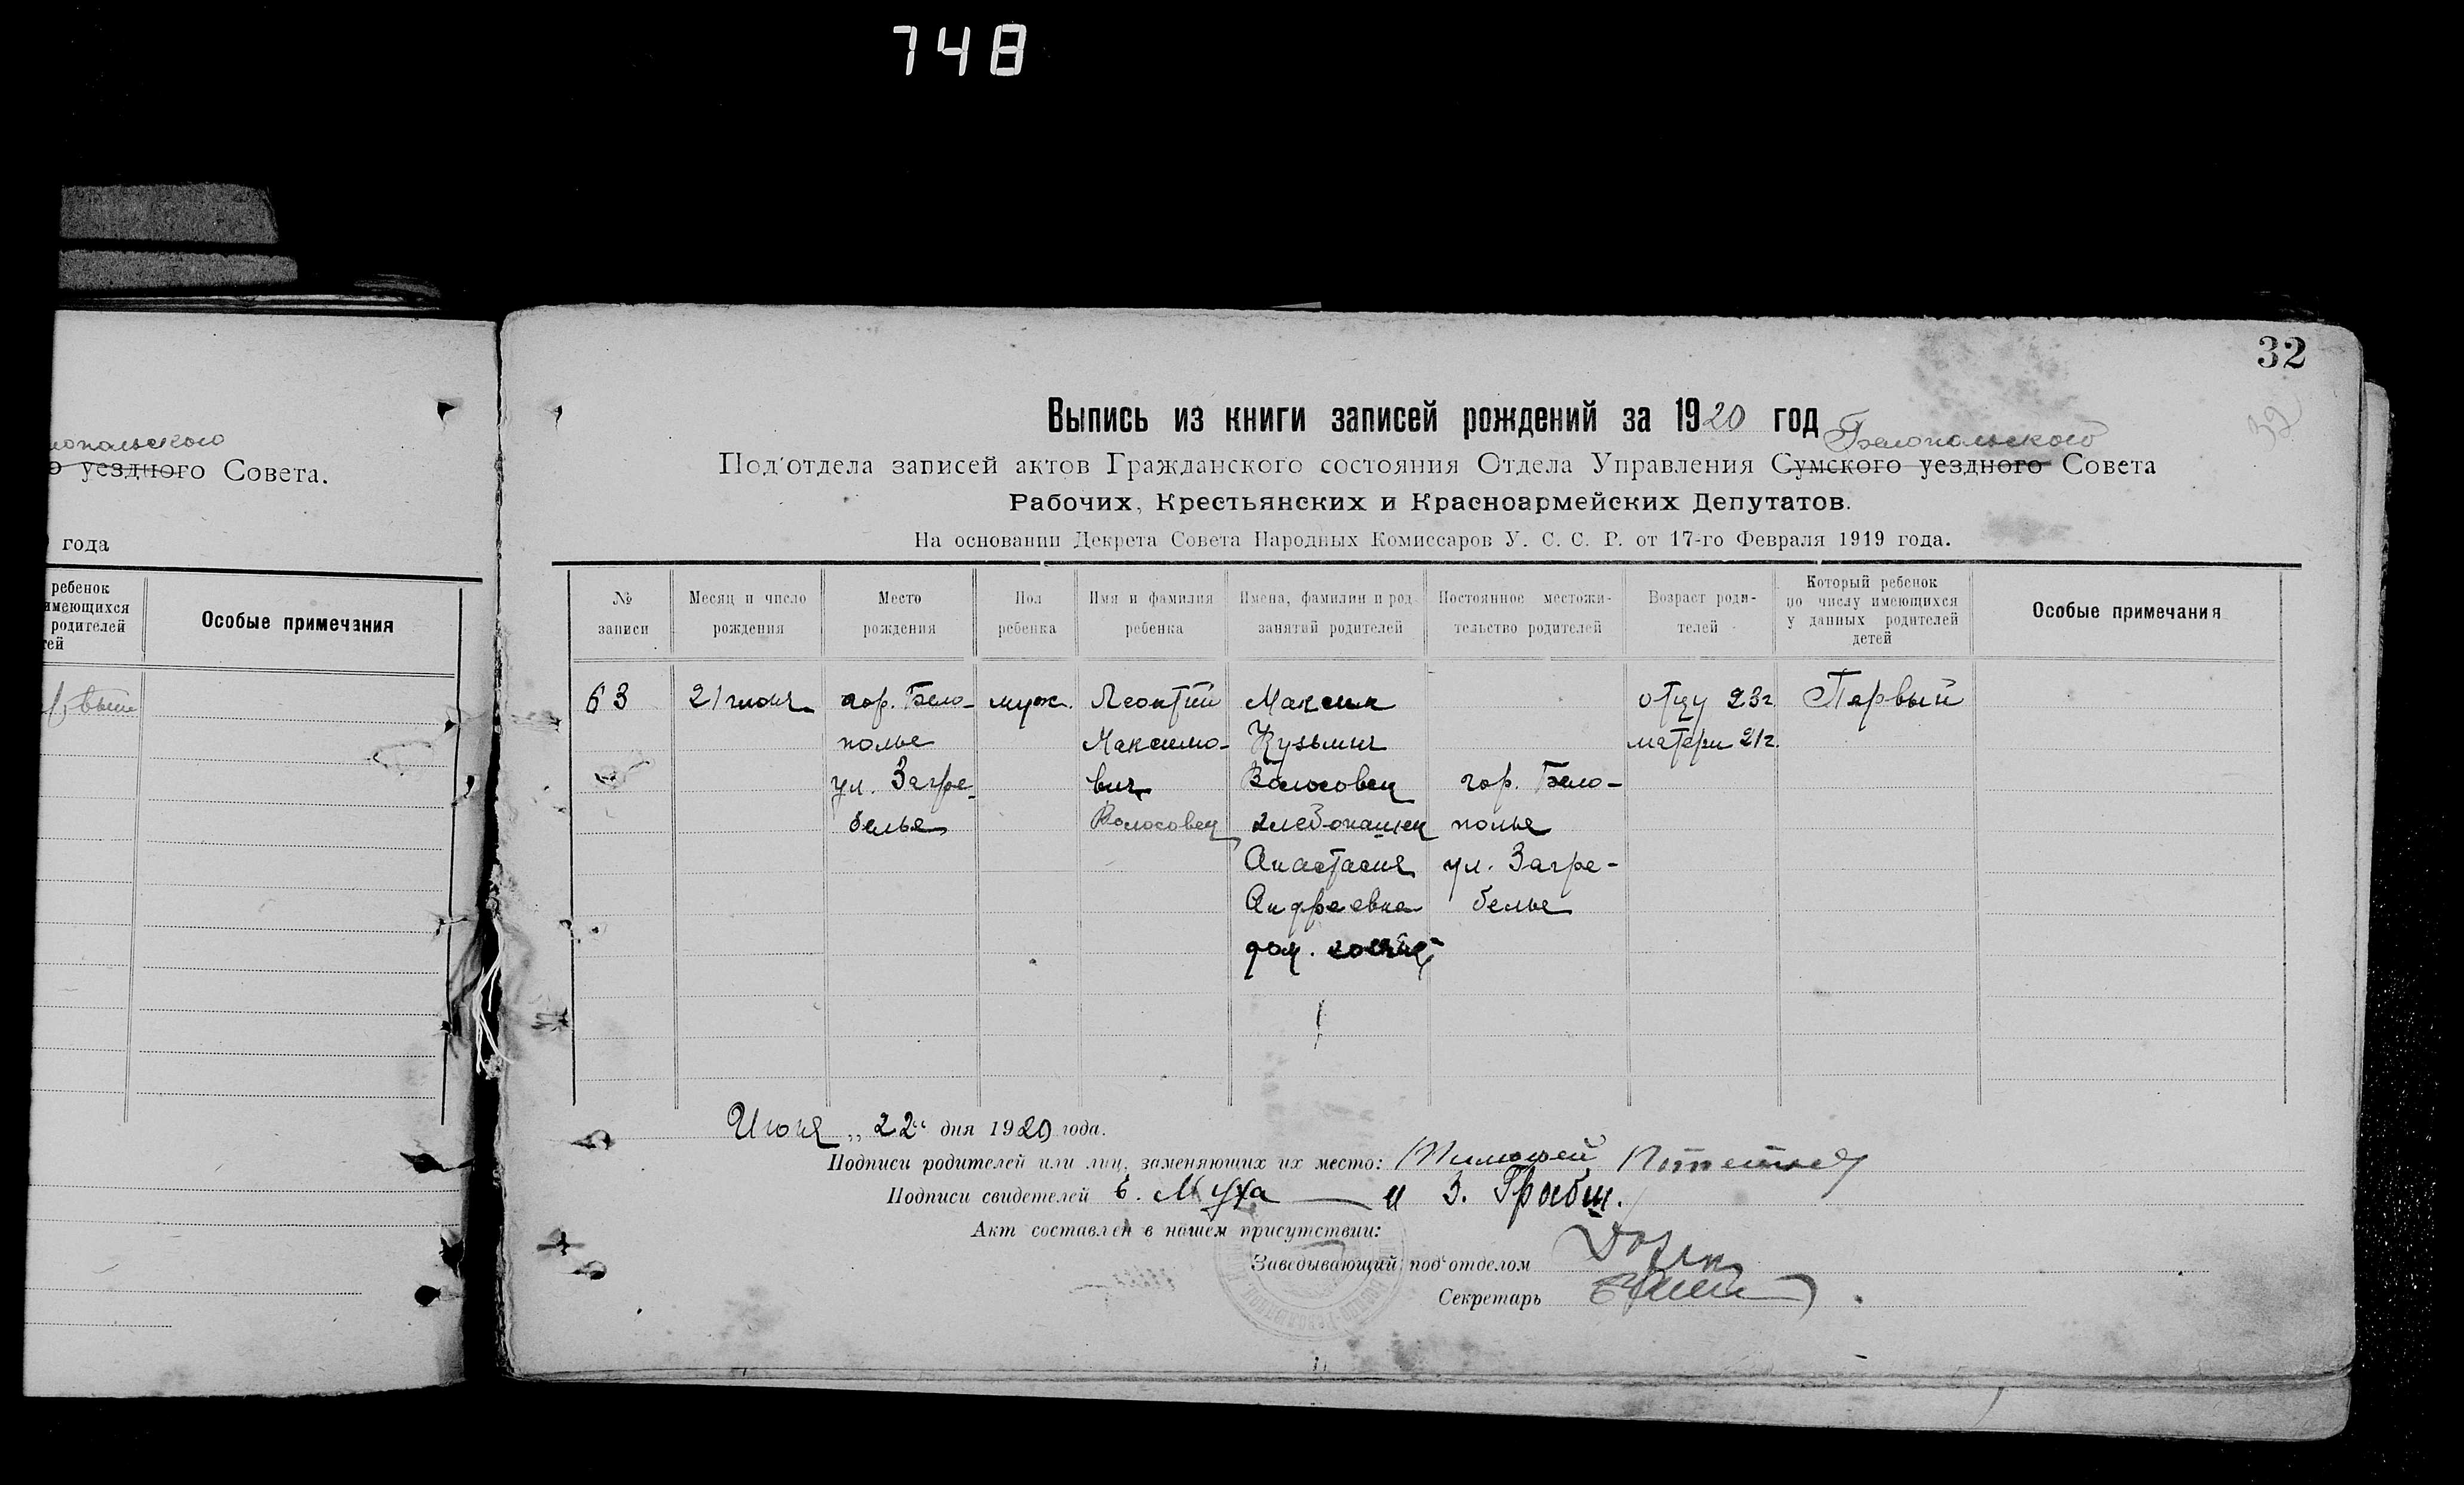 748
32
32
опольского
о уездного Совета.
года
ребенок
имеющихся
родителей
тей
Особые примечания
Выпись из книги записей рождений за 1920 год
Белопольского
Под'отдела записей актов Гражданского состояния Отдела Управления Сумского уездного Совета
Рабочих, Крестьянских и Красноармейских Депутатов.
На основании Декрета Совета Народных Комиссаров У. С. С. Р. от 17-го Февраля 1919 года.
№ записи
Месяц и число рождения
Место рождения
Пол ребенка
Имя и фамилия ребенка
Имена, фамилии и род занятий родителей
Постоянное местожительство родителей
Возраст родителей
Который ребенок по числу имеющихся у данных родителей детей
Особые примечания
63
21 июня
гор. Бело-
полье
ул. Загре-
белье
муж.
Леонтий
Максимо-
вич
Волосовец
Максим
Кузьмич
Волосовец
хлебопашец
Анастасия
Андреевна
дом. хозяй
гор. Бело-
полье
ул. Загре-
белье
отцу 23 г
матери 21 г.
Первый
Июня „22“ дня 1920 года.
Подписи родителей или лиц, заменяющих их место: Тимофей
Подписи свидетелей Е. Муха и З. Грабш.
Акт составлен в нашем присутствии:
Заведывающий под'отделом
Секретарь